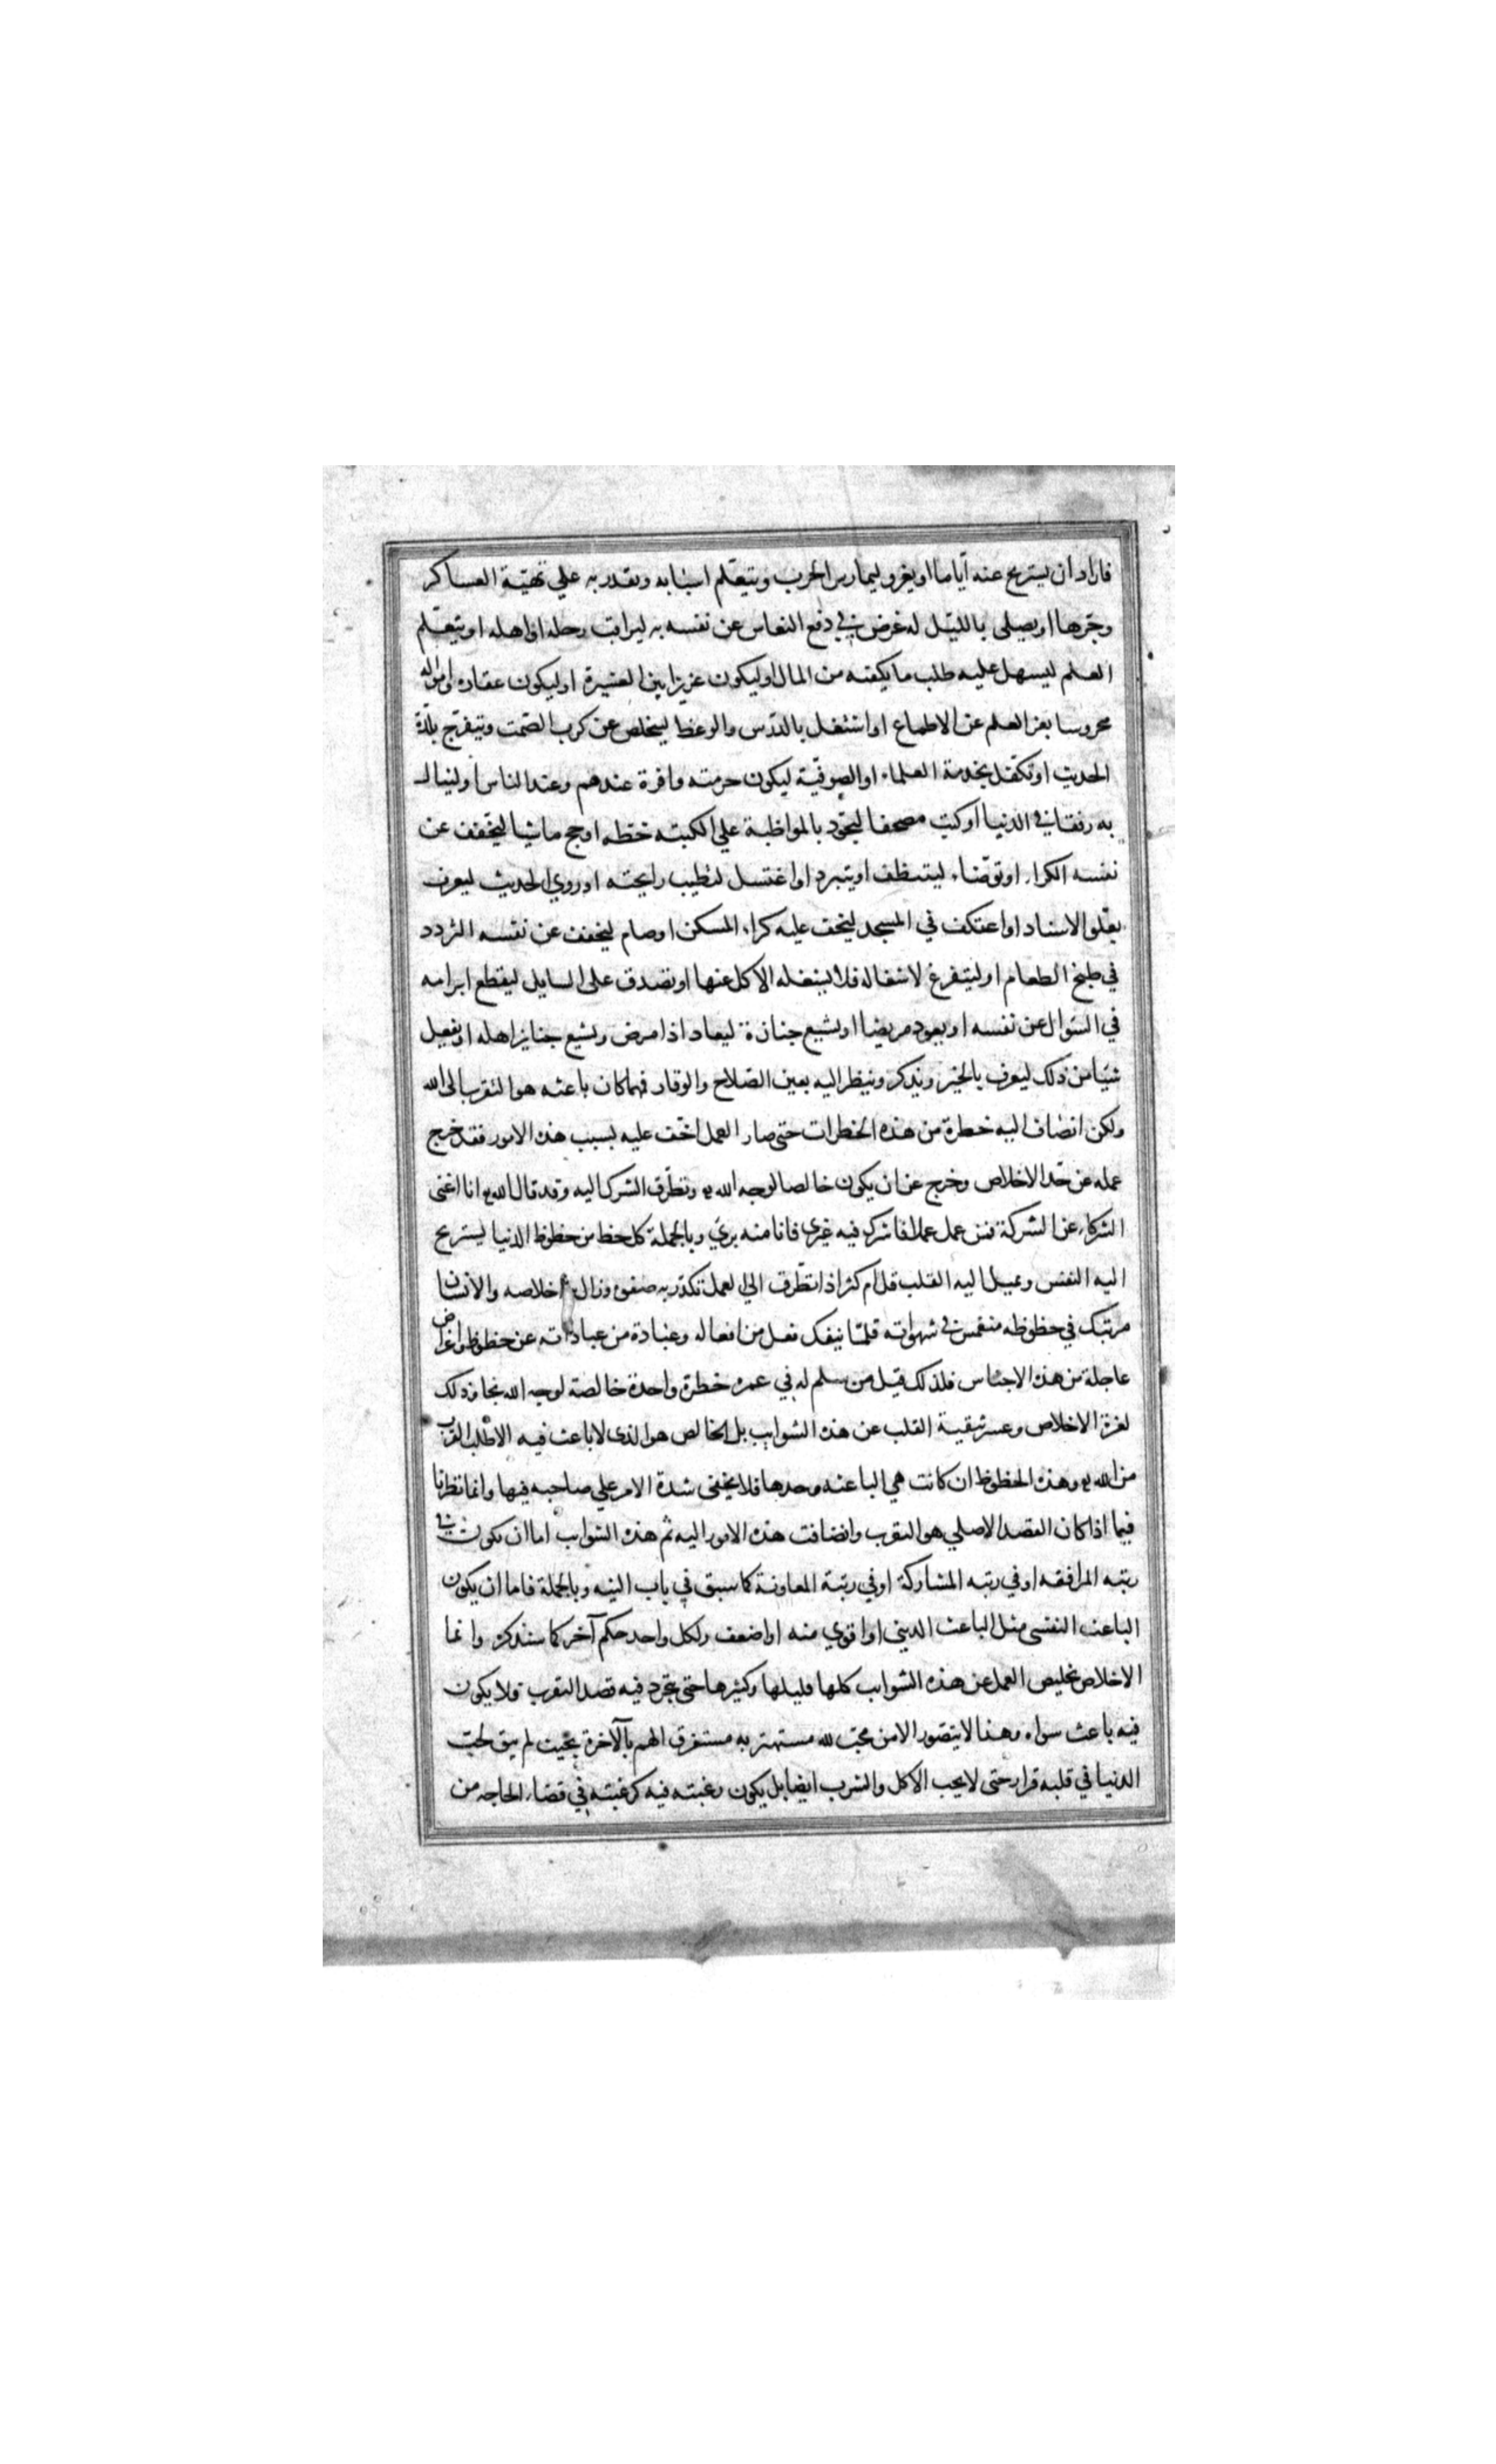 فاراد ان يستريح عنه أياما او يغزو ليمارس الحرب ويتعلم اسبابه ويقدر به علي تهيئة العساكر
وجرها او يصلى بالليل له غرض في دفع النعاس عن نفسه به ليراقب رحله او اهله او يتعلم
العلم ليسهل عليه طلب ما يكفيه من المال او ليكون عزيزا بين العشيرة او ليكون عقاره وامواله
محروسا بعز العلم عن الاطماع او اشتغل بالدرس والوعظ ليتخلص عن كرب الصمت ويتفرج بلذة
الحديث او تكفل بخدمة العلماء او الصوفية ليكون حرمته وافرة عندهم وعند الناس او لينال
به رفقا في الدنيا او كتب مصحفا ليجود بالمواظبة علي الكتبة خطه او حج ماشيا ليخفف عن
نفسه الكراء او توضاء ليتنظف او يتبرد او اغتسل لتطيب رايحته او روي الحديث ليعرف
بعلو الاسناد او اعتكف في المسجد ليخف عليه كراء المسكن او صام ليخفف عن نفسه التردد
في طبخ الطعام او ليتفرغ لاشغاله فلا يشغله الاكل عنها او تصدق على السايل ليقطع ابرامه
في السؤال عن نفسه او يعود مريضا او يشيع جنازة ليعاد اذا مرض ويشيع جنايز اهله او يفعل
شيئا من ذلك ليعرف بالخير ويذكر وينظر اليه بعين الصلاح والوقار فهما كان باعثه هو التقرب الى الله
ولكن انضاف اليه خطرة من هذه الخطرات حتى صار العمل اخف عليه بسبب هذه الامور فقد خرج
عمله عن حد الاخلاص وخرج عن ان يكون خالصا لوجه الله وتطرق الشرك اليه وقد قال الله انا اغنى
الشركاء عن الشركة فمن عمل عملا فاشرك فيه غيرى فانا منه بري وبالجملة كل حظ من حظوظ الدنيا يستريح
اليه النفس ويميل اليه القلب قل ام كثر اذا تطرق الي العمل تكدر به صفوه وزال اخلاصه والانسان
مرتبك في حظوظه منغمس في شهواته قلما ينفك فعل من افعاله وعبادة من عباداته عن حظوظ واغراض
عاجلة من هذه الاجناس فلذلك قيل من سلم له في عمره خطرة واحدة خالصة لوجه الله نجا وذلك
لعزة الاخلاص وعسر تنقية القلب عن هذه الشوايب بل الخالص هو الذى لا باعث فيه الا طلب القرب
من الله وهذه الحظوظ ان كانت هي الباعثه وحدها فلا يخفى شدة الامر علي صاحبه فيها وانما نظرنا
فيما اذا كان القصد الاصلي هو التقرب وانضافت هذه الامور اليه ثم هذه الشوايب اما ان يكون في
رتبه المرافقه او في رتبه المشاركة او في رتبة المعاونة كما سبق في باب النيه وبالجملة فاما ان يكون
الباعث النفسى مثل الباعث الدينى او اقوي منه او اضعف ولكل واحد حكم آخر كما سنذكره وانما
الاخلاص تخليص العمل عن هذه الشوايب كلها قليلها وكثيرها حتى يتجرد فيه قصد التقرب فلا يكون
فيه باعث سواه وهذا لا يتصور الا من محب لله مستهتر به مستغرق الهم بالآخرة بحيث لم يبق لحب
الدنيا في قلبه قرار حتى لا يحب الاكل والشرب ايضا بل يكون رغبته فيه كرغبته في قضاء الحاجه من